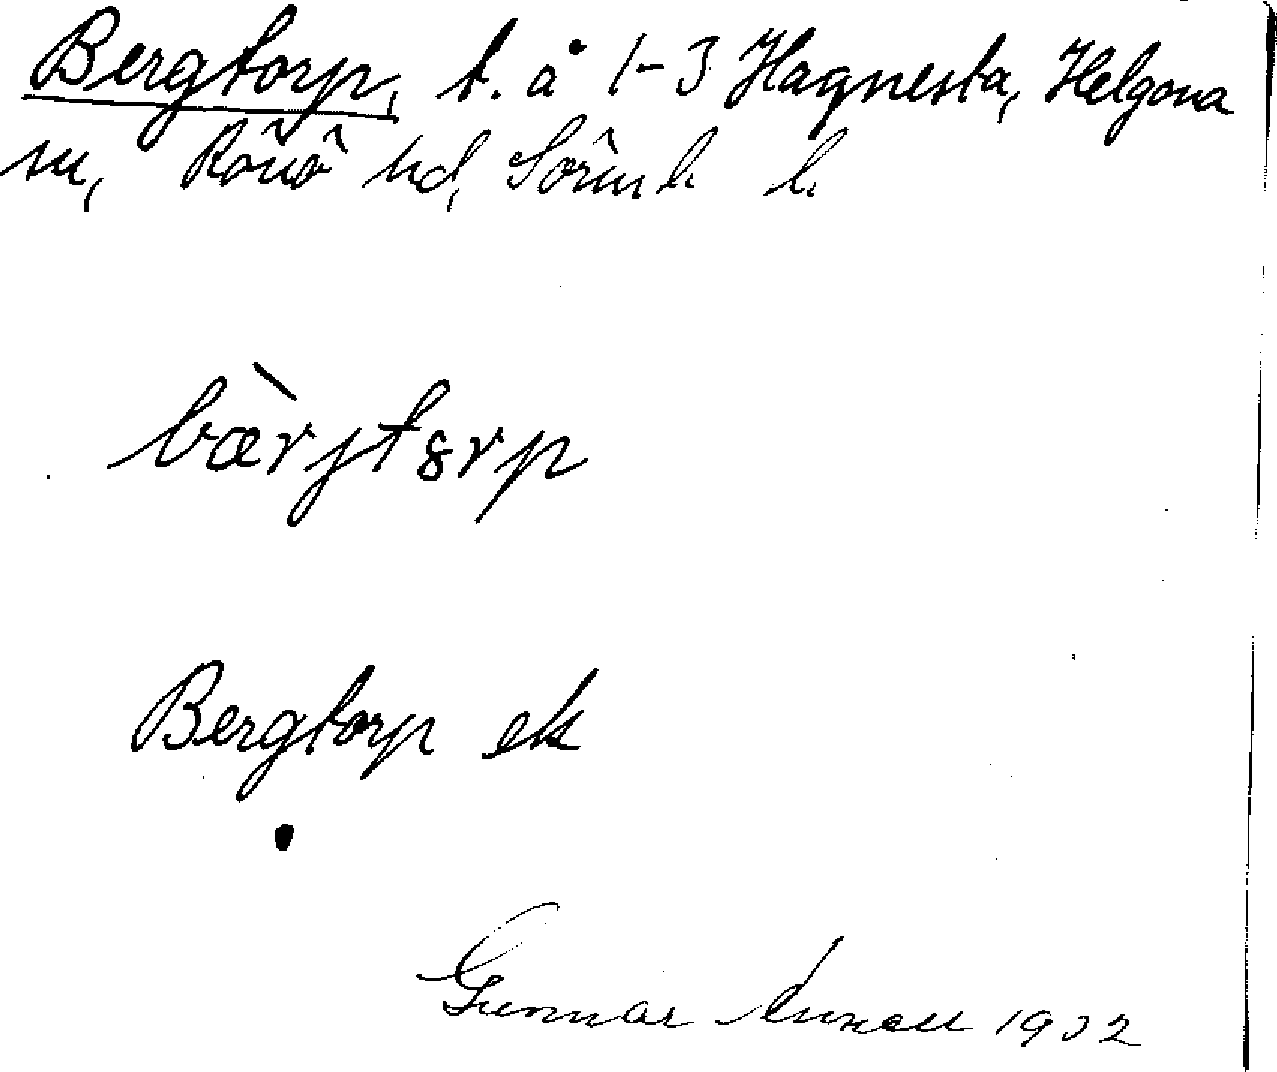 Bergtorp, t. å 1-3 Hagnesta, Helgona
sn, Rönö hd, Sörml. l.
bæ̀rjtȣrp
Bergtorp ek
Gunnar 1932